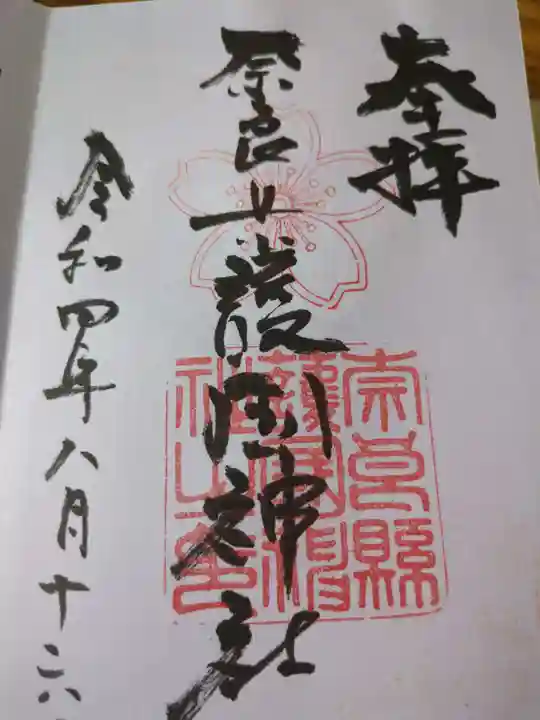 奉拝
奈良县護國神社
令和四年八月十六
奈良縣
護國神
社之印